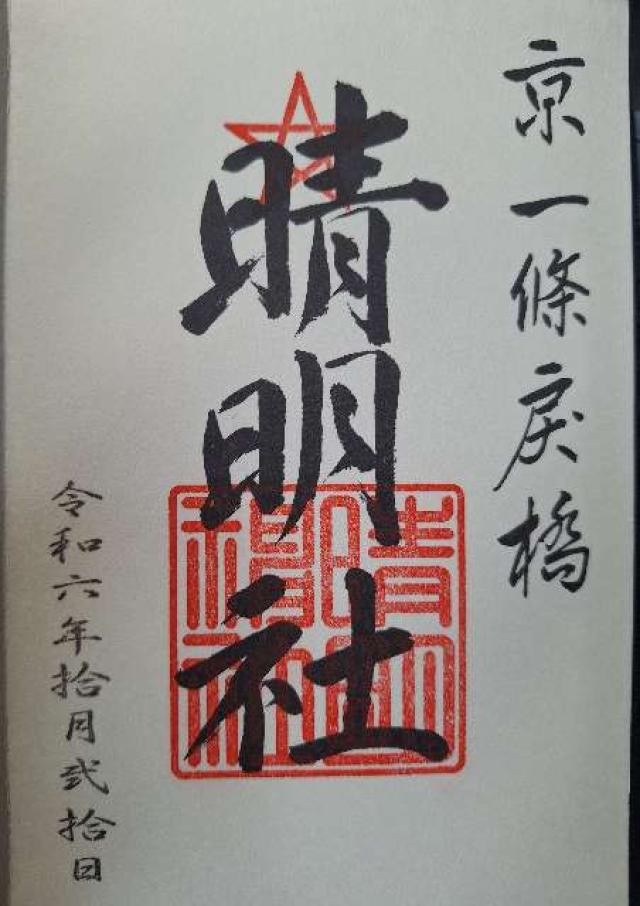 京一條戻橋
晴明社
晴明神社
令和六年拾月弐拾日